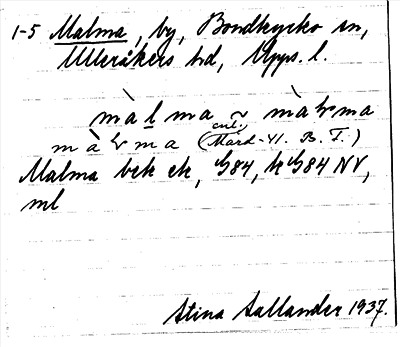 1-5 Malma, by, Bondkyrko sn,
Ulleråkers hd, Upps. l.
màlma ~ màɽma
màɽma (enl. Mard-41. B. T.)
Malma bek ek, G84, k G84 NV,
ml
Stina Sallander 1937.